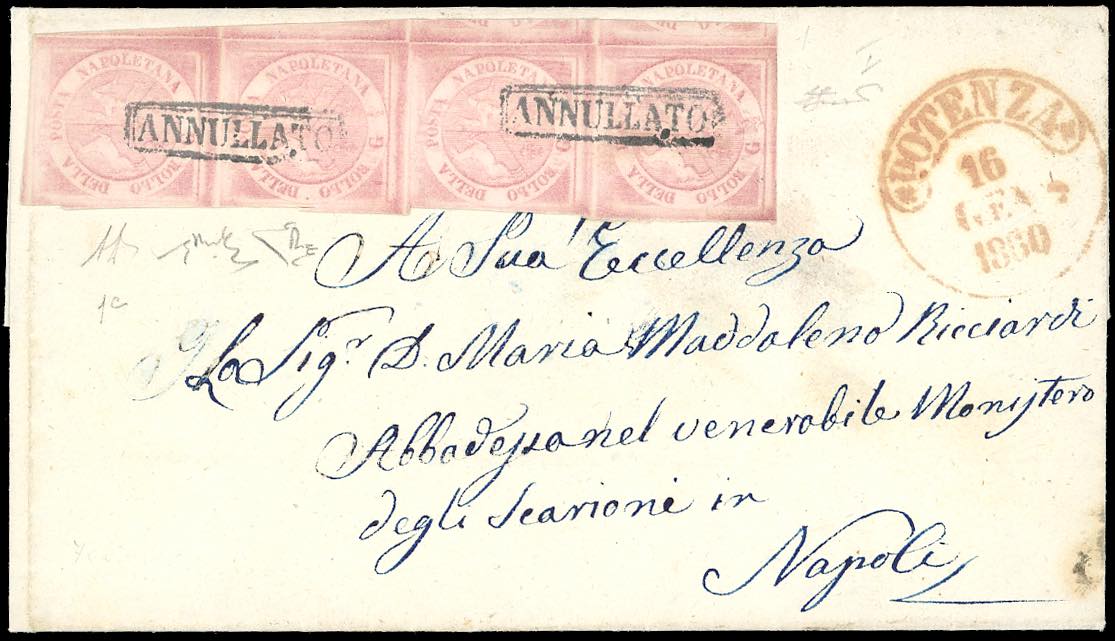 DELLA POSTA NAPOLETANA G BOLLO
DELLA POSTA NAPOLETANA G BOLLO
DELLA POSTA NAPOLETANA G BOLLO
DELLA POSTA NAPOLETANA G BOLLO
ANNULLATO
ANNULLATO
POTENZA
16
GEN
1860
A Sua Eccellenza
La Sig.r D. Maria Maddalena Ricciardi
Abbadessa nel venerabile Monistero
degli Scarioni in
Napoli
1a